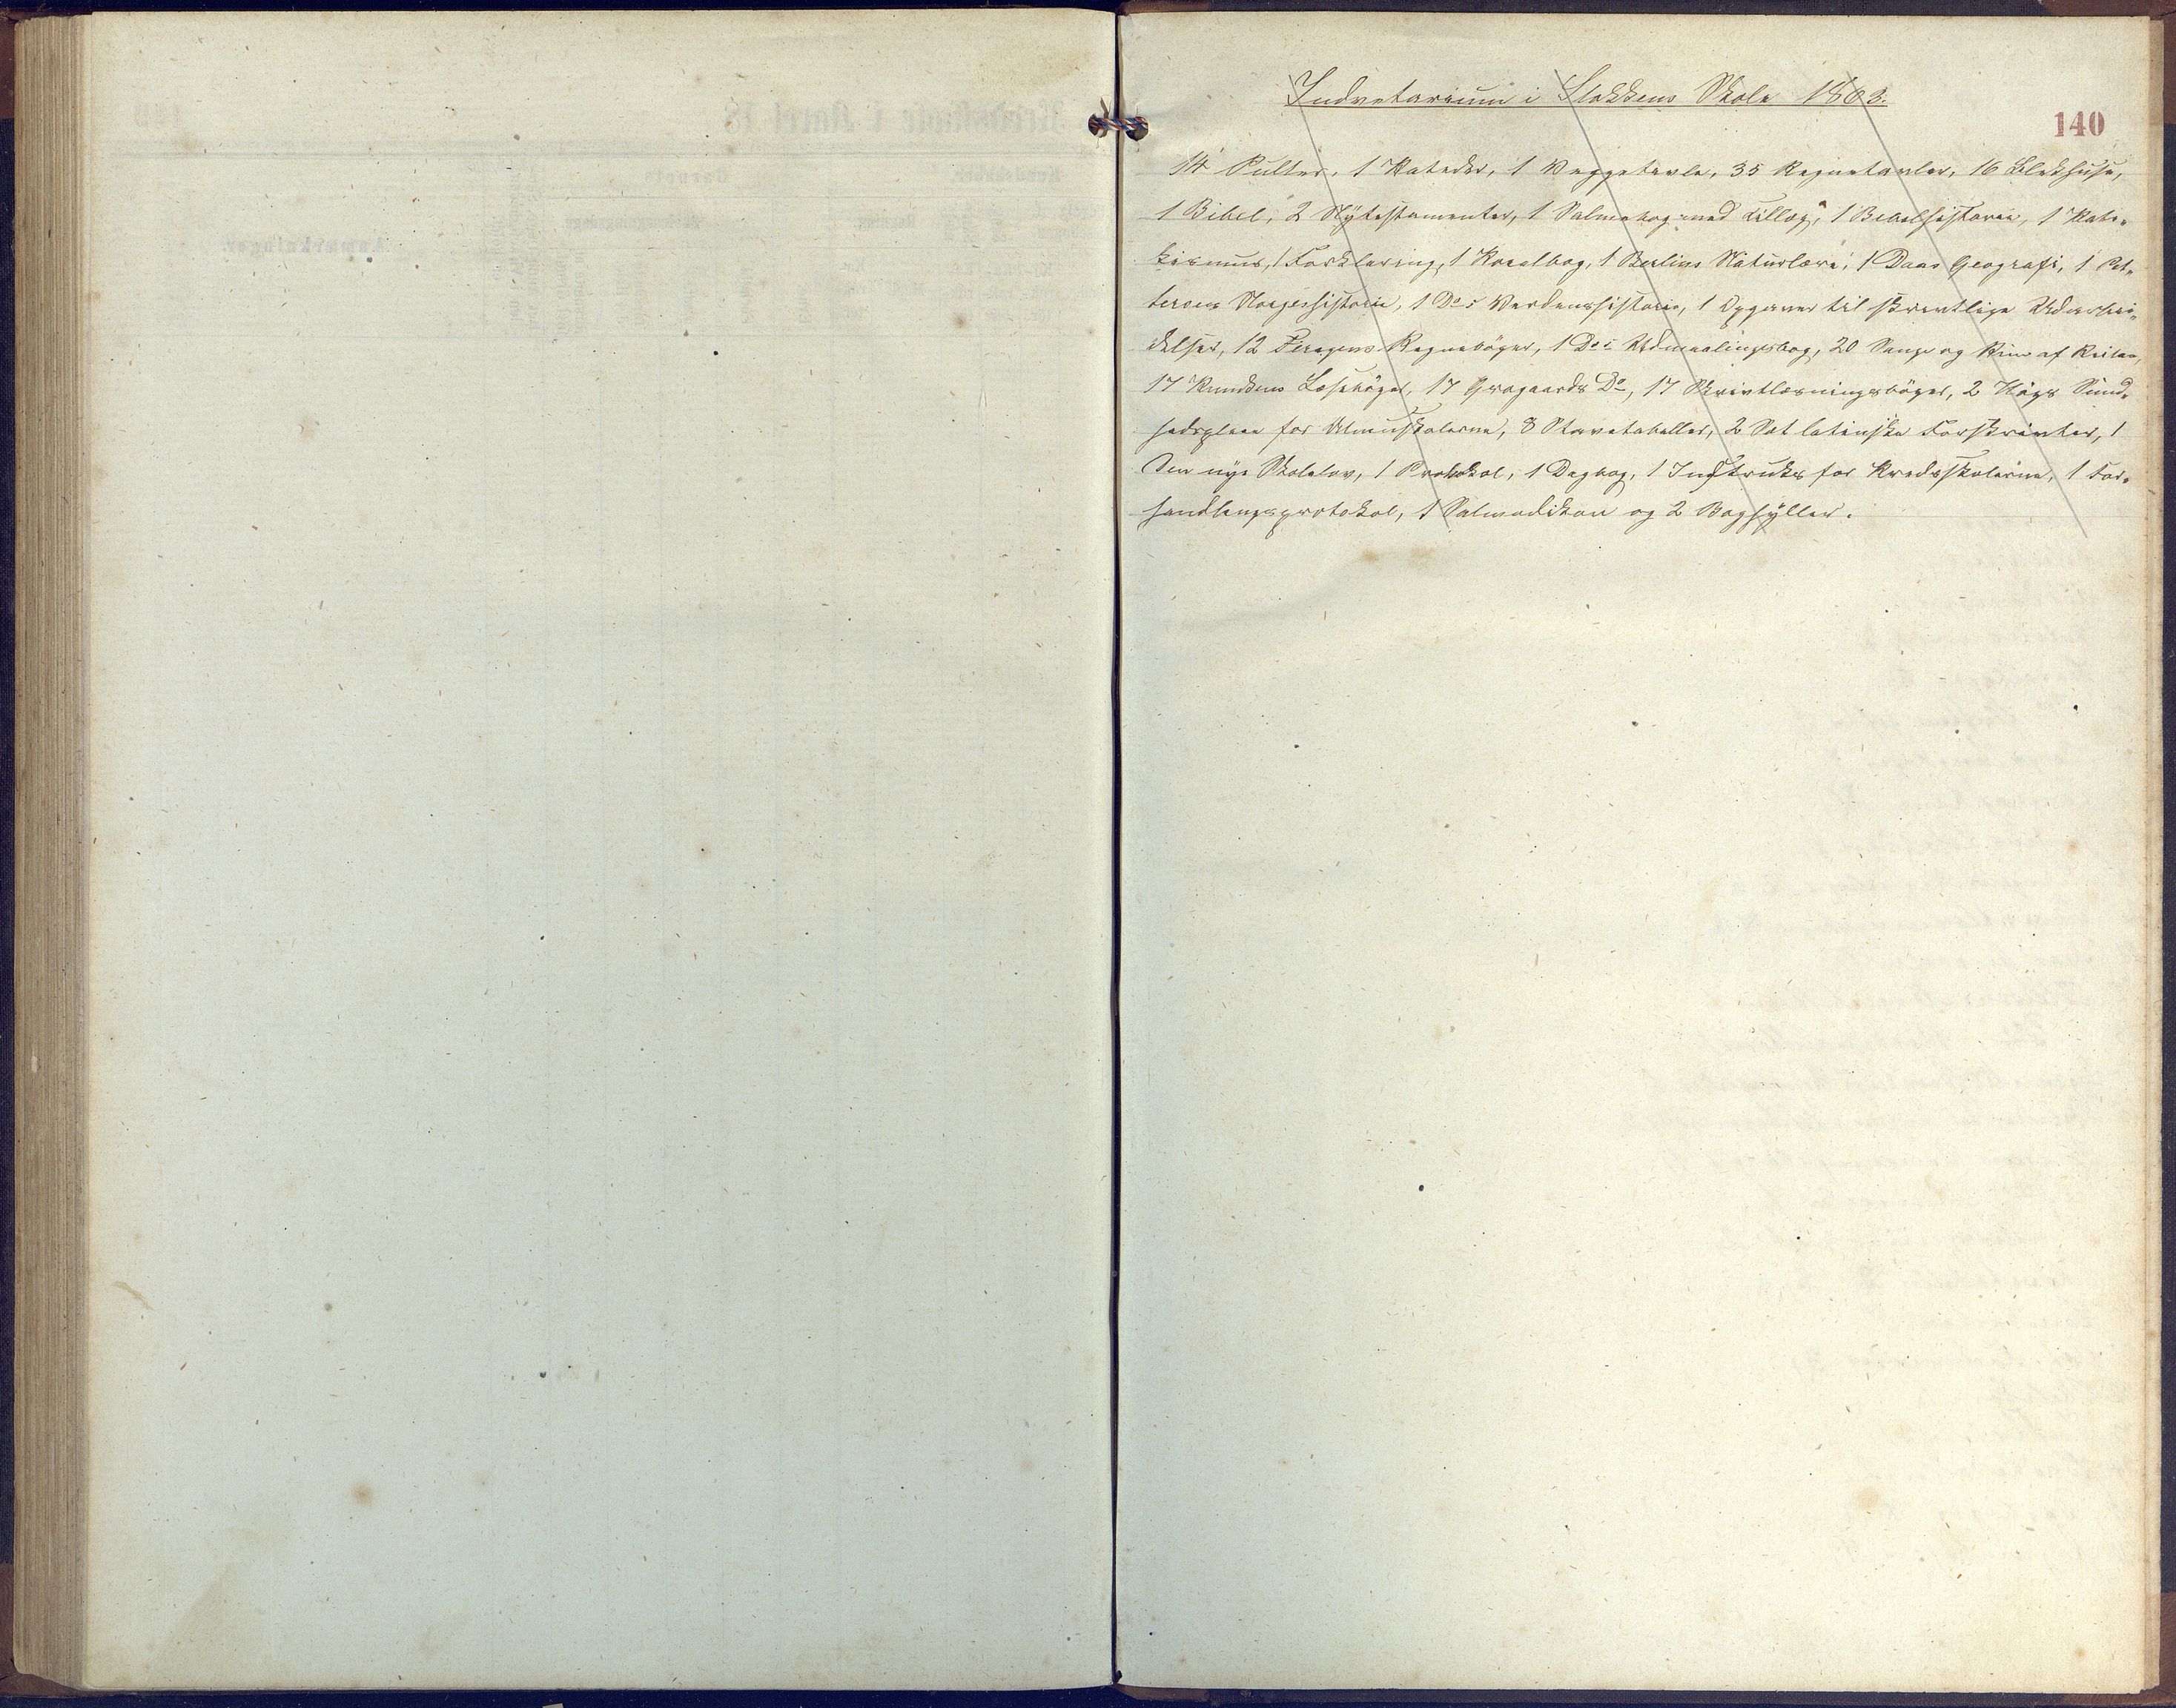 Indvetarium i Stokkens Skole 1863.
140
14 Pulter, 1 Kateder, 1 Veggetavle, 35 Regnetavler, 16 Blekhuse,
1 Bibel, 2 Nytestamenter, 1 Salmebog med Tillæg, 1 Bibelhistorie, 1 Kate„
kismus, 1 Forklaring, 1 Koralbog, 1 Berlins Naturlære, 1 Daas Geografi, 1 Pet„
tersens Norgeshistorie, 1 Do s Verdenshistorie, 1 Opgaver til skrivtlige Udarbei„
delser, 12 Feragens Regnebøger, 1 Do s Udmaalingsbog, 20 Sange og Rim af
17 Knudsens Læsebøger, 17 Grøgaards Do, 17 Skrivtlæsningsbøger, 2 Sund„
hedspleie for Almuskolerne, 8 Stavetabeller, 2 Sæt latinske Forskrivter, 1
Den nye Skolelov, 1 Protokol, 1 Dagbog, 1 Instruks for Kredsskolerne, 1 For„
handlingsprotokol, 1 Salmodikon og 2 Boghyller.